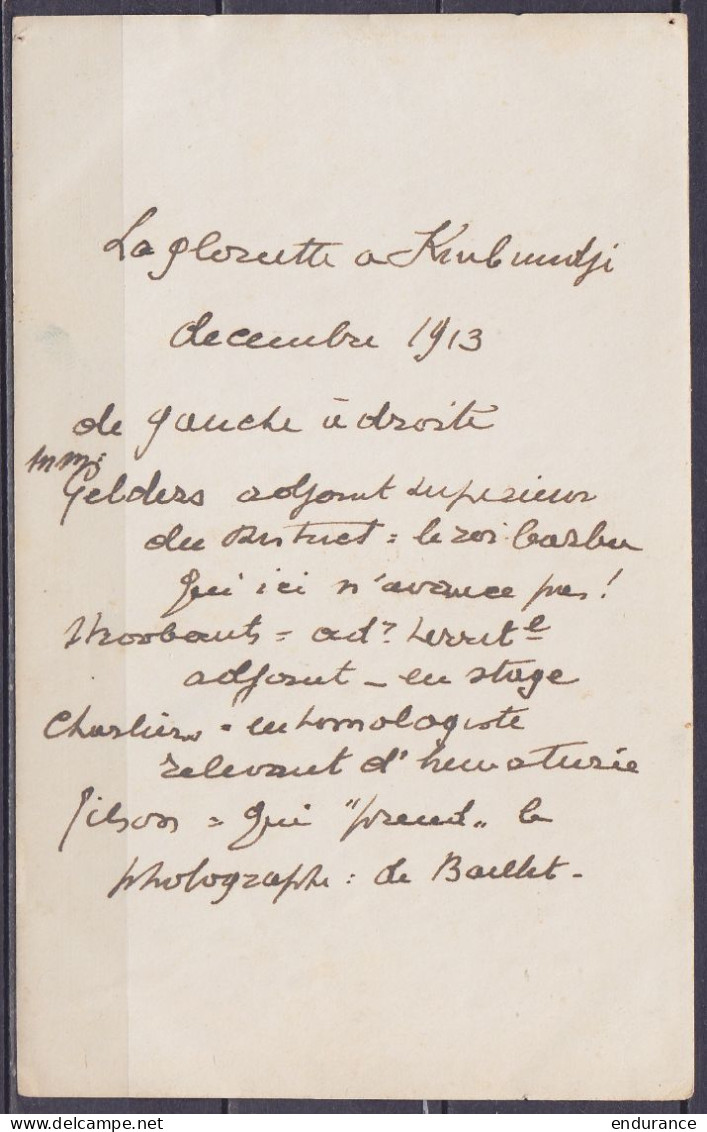 La glorutte a Kiubundji
decembre 1913
de gauche à droite
Gelders adjoint superieur
du District = le roi barbu
qui ici n'avance pas!
Stroobants = adr territl
adjoint - en stage
Charliers = entomologiste
relevant d'hematurie
Gilson = qui "prend" le
photographe : de Baillet -
endurance